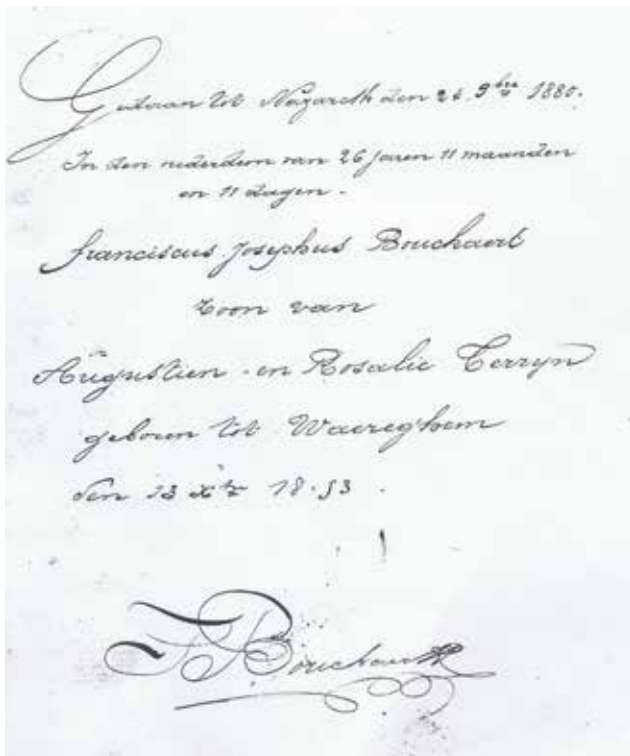 Gedaan tot Nazareth den 24 9bre 1880.
In den ouderdom van 26 jaren 11 maanden
en 11 dagen.
franciscus Josephus Bouchaert
zoon van
Augustien en Rosalie Terryn
geboren tot Waereghem
den 13 Xbr 18.53.
F Bouchaert